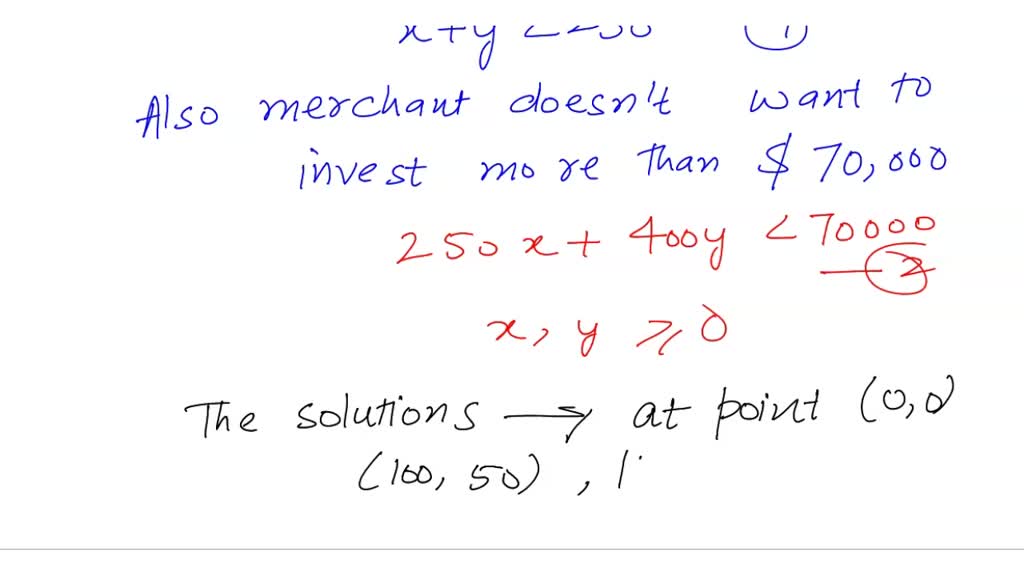 x + y
Also merchant doesn't want to
invest more than $ 70,000
250x + 400y < 70000
— 2
x, y ≥ 0
The solutions → at point (0,0)
(100, 50) ,